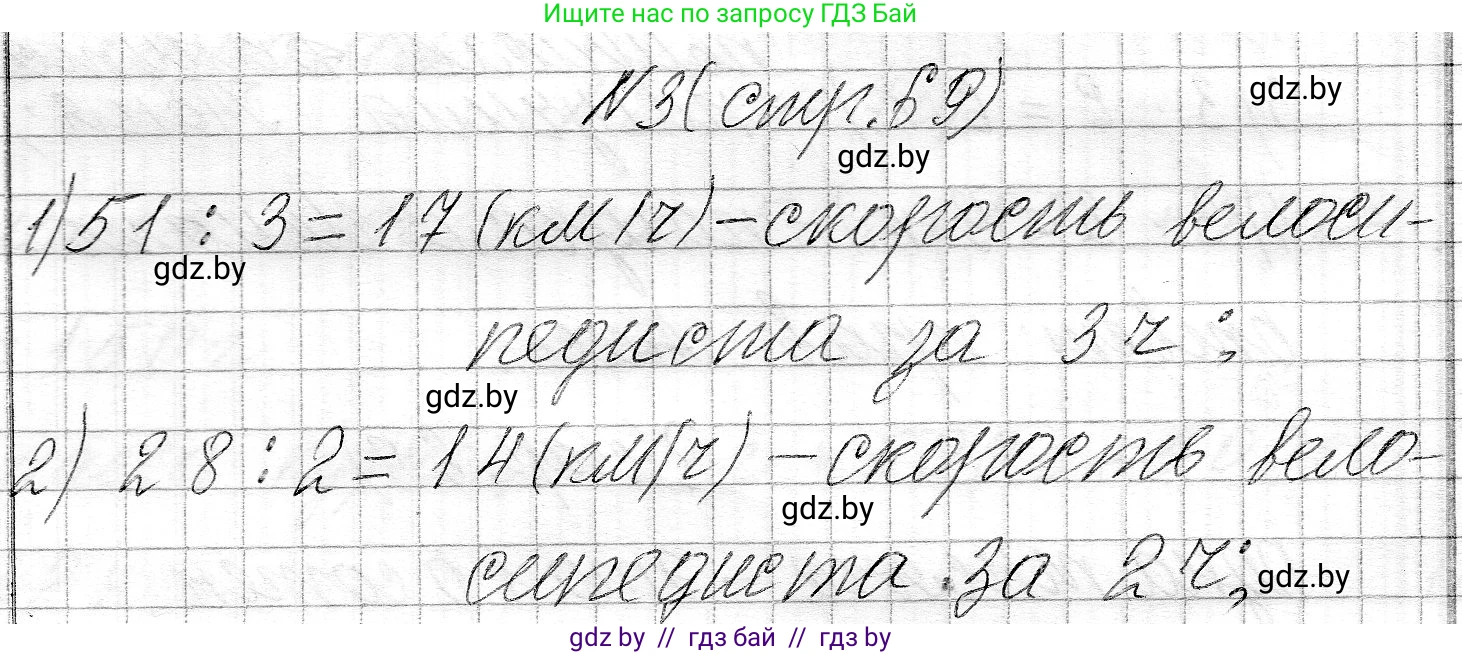 Ищите нас по запросу ГДЗ Бай
N3(стр.69)
gdz.by
gdz.by
1) 51 : 3 = 17 (км/ч) – скорость велоси-
gdz.by
педиста за 3 ч ;
gdz.by
2) 28 : 2 = 14 (км/ч) – скорость вело-
gdz.by
сипедиста за 2 ч;
gdz.by
gdz by // гдз бай // гдз by